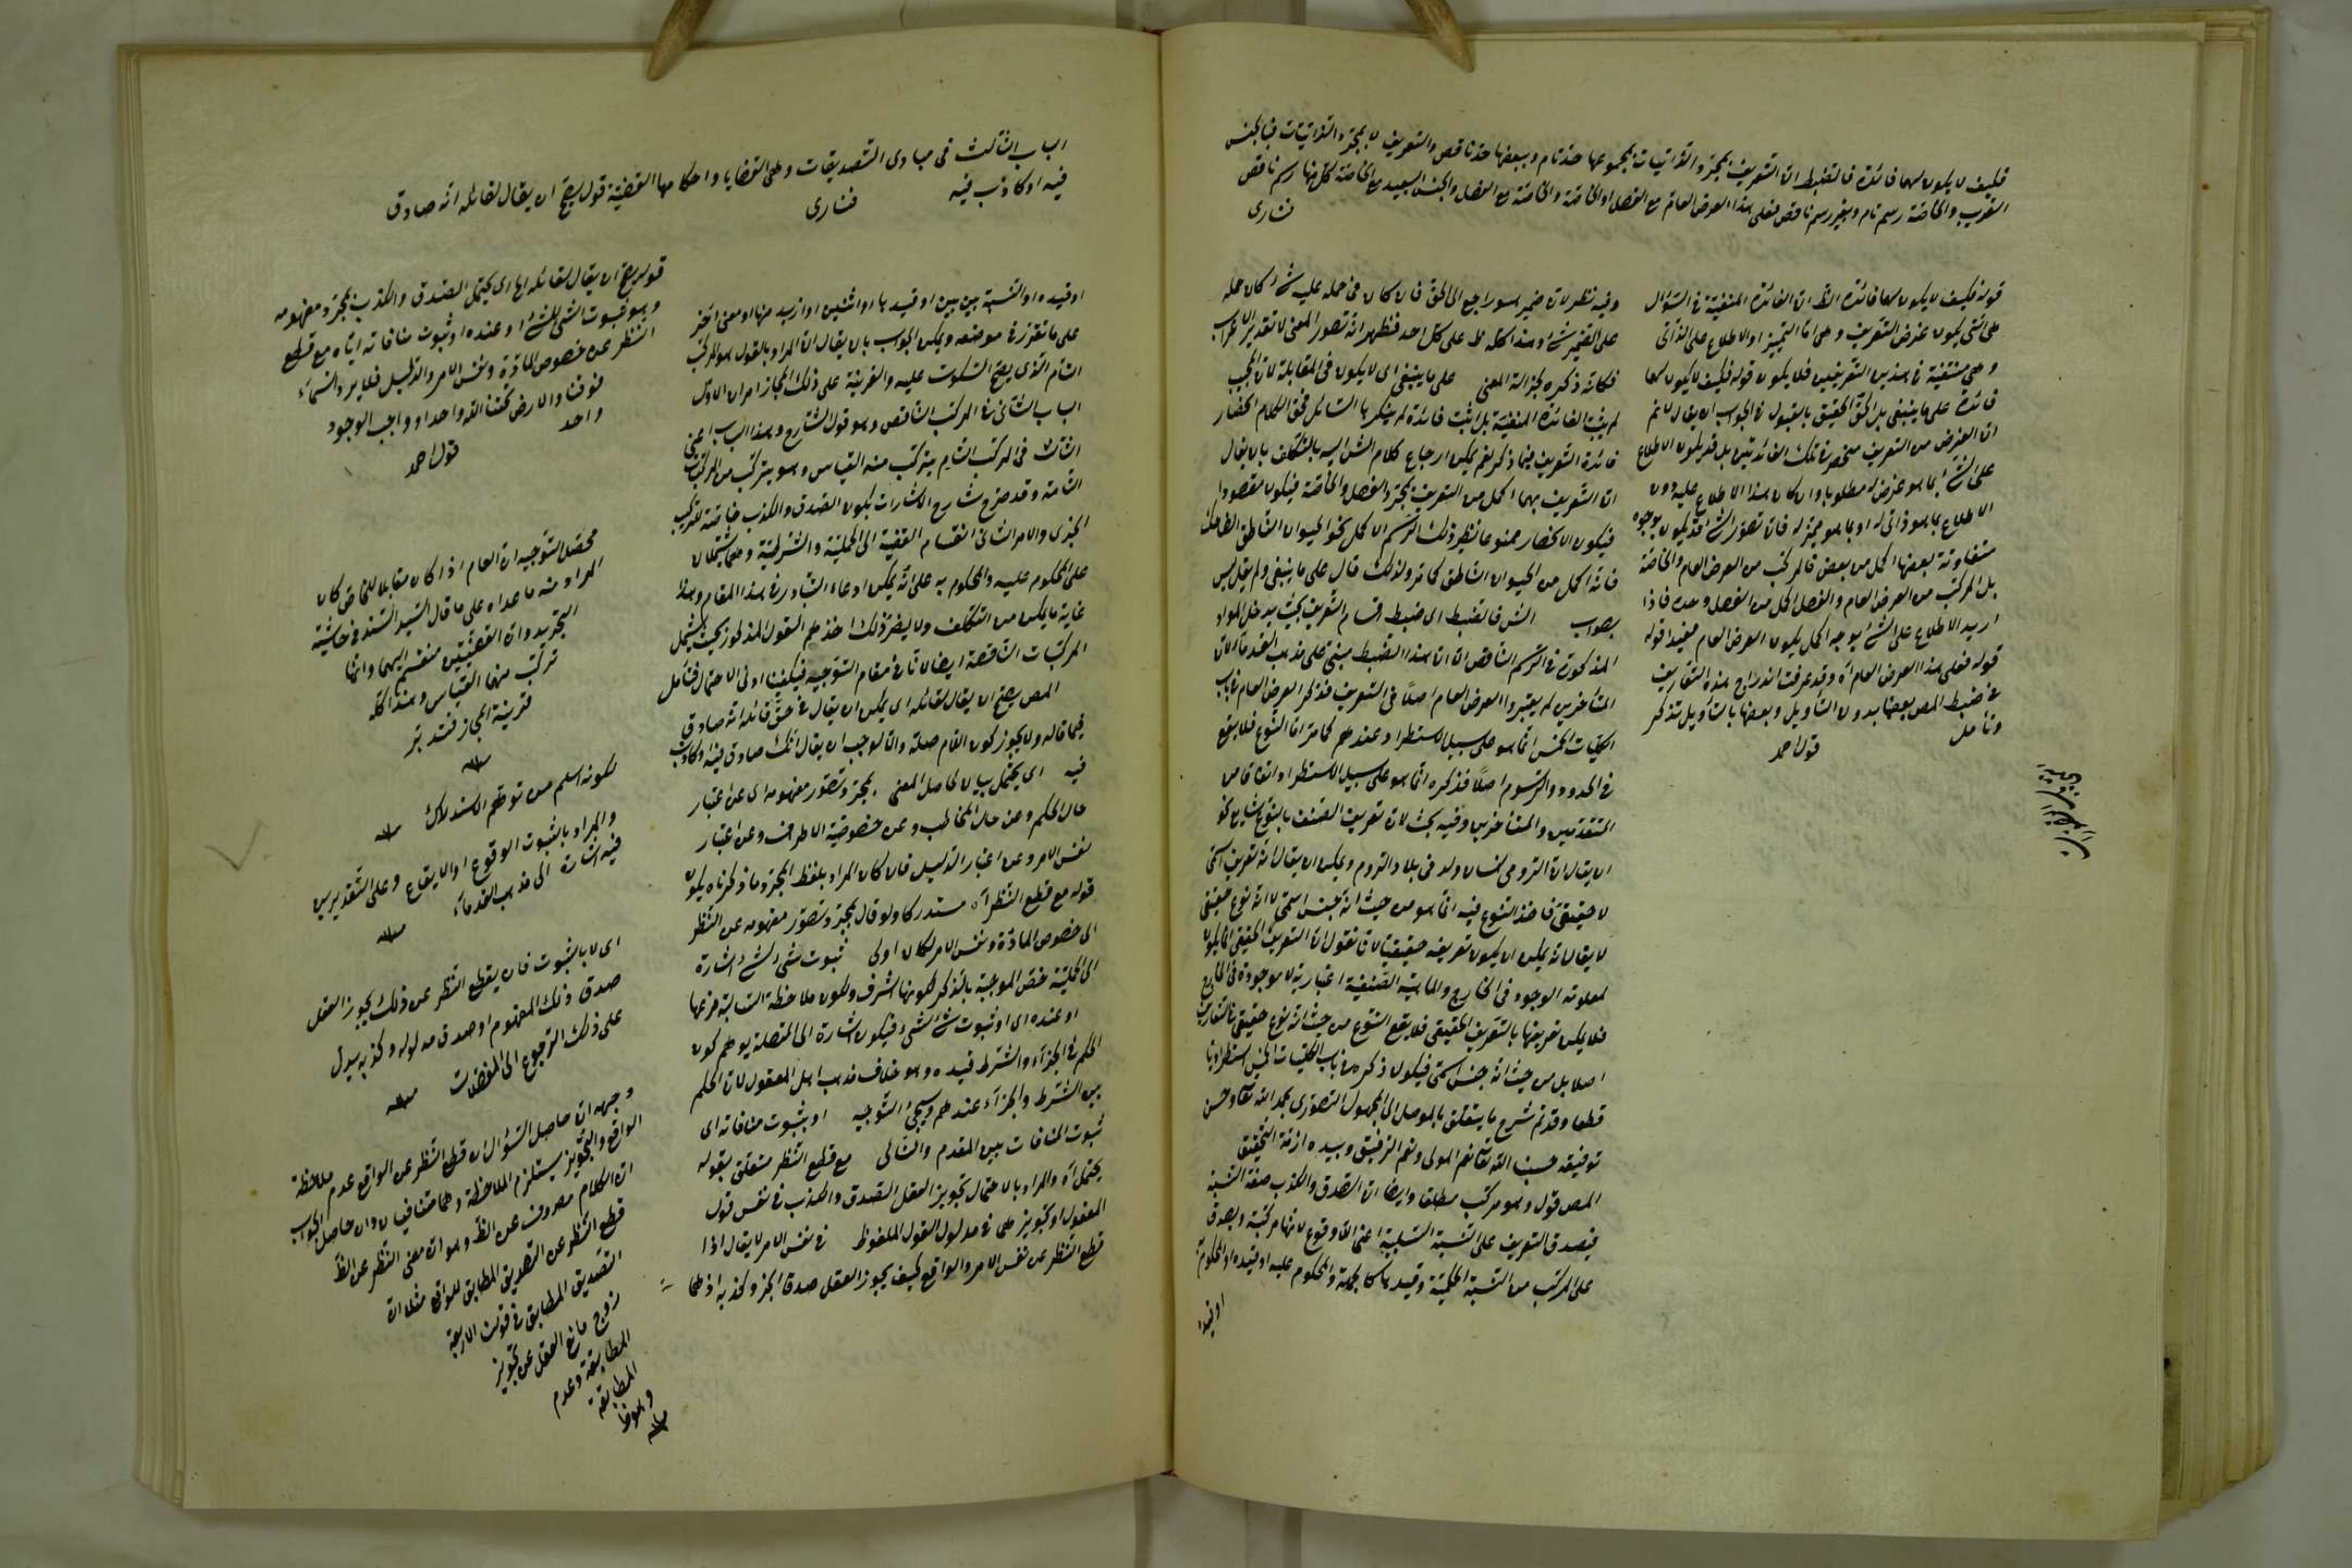 فكيف لا يكون لهما فائدة فالضبط ان التعريف بمجرد الذاتيات بمجموعها حد تام وببعضها حد ناقص والتعريف لا بمجرد الذاتيات فبالجنس
القريب والخاصة رسم تام وبغيره رسم ناقص فعلى هذا العرض العام مع الفصل او الخاصة والخاصة مع الفصل والجنس البعيد مع الخاصة كل منها رسم ناقص
فنارى
قوله فكيف لا يكون لهما فائدة الظ ان الفائدة المنفية فى السؤال
هى التى يكون غرض التعريف وهى اما التمييز او الاطلاع على الذاتى
وهى منتفية فى هذين التعريفين فلا يكون قوله فكيف لا يكون لهما
فائدة على ما ينبغى بل الحق الحقيق بالقبول فى الجواب ان يقال لا نم
ان الغرض من التعريف منحصر فى تلك الفائدتين بل قد يكون الاطلاع
على الشئ بما هو عرض له مطلوبا وان كان هذا الاطلاع عليه دون
الاطلاع بما هو ذاتى له او بما هو مميز له فان تصور الشئ قد يكون بوجوه
متفاوتة بعضها اكمل من بعض فالمركب من العرض العام والخاصة
بل المركب من العرض العام والفصل اكمل من الفصل وحده فاذا
اريد الاطلاع على الشئ بوجه اكمل يكون العرض العام مفيدا قوله
قوله فعلى هذا العرض العام اه وقد عرفت اندراج هذه التعاريف
فى ضبط المص بعضها بدون التأويل وبعضها بالتأويل تذكر
وتأمل
قول احمد
وفيه نظر لان ضمير هو راجع الى الحق فان كان فى حمله عليه شئ كان حمله
على الضمير شئ وهذا كله لا على كل احد فظهر انه تصور المعنى لا تقدير الاعراب
فكأنه ذكره لجزالة المعنى على ما ينبغى اى لا يكون فى المقابلة لان المجيب
لم يثبت الفائدة المنفية بل اثبت فائدة لم ينكرها السائل فحق الكلام انحصار
فائدة التعريف فيما ذكر نعم يمكن ارجاع كلام الش اليه بالتكلف بان يقال
ان التعريف بهما اكمل من التعريف بمجرد الفصل والخاصة فيكون مقصودا
فيكون الانحصار ممنوعا نظير ذلك الرسم الاكمل نحو الحيوان الناطق الضاحك
فانه اكمل من الحيوان الناطق كما مر ولذلك قال على ما ينبغى ولم يقل ليس
بصواب الش فالضبط اى ضبط اقسام التعريف بحيث يدخل المواد
المذكورة فى الرسم الناقص ان هذا الضبط مبنى على مذهب القدماء لان
المتأخرين لم يعتبروا العرض العام اصلا فى التعريف فذكر العرض العام فى باب
الكليات الخمس انما هو على سبيل الاستطراد عندهم كما مر اما النوع فلا يقع
فى الحدود والرسوم اصلا فذكره انما هو على سبيل الاستطراد اتفاقا من
المتقدمين والمتأخرين وفيه بحث لان تعريف الصنف بالنوع شايع نحو
ان يقال ان الرومى انسان ولد فى بلاد الروم ويمكن ان يقال انه تعريف اسمى
لا حقيقى فاخذ النوع فيه انما هو من حيث انه جنس اسمى لا انه نوع حقيقى
لا يقال انه يمكن ان يكون تعريفه حقيقيا لانا نقول ان التعريف الحقيقى انما يكون
لمعلومة الوجود فى الخارج والماهية الصنفية اعتبارية لا موجودة فى الخارج
فلا يمكن تعريفها بالتعريف الحقيقى فلا يقع النوع من حيث انه نوع حقيقى فى التعاريف
اصلا بل من حيث انه جنس اسمى فيكون ذكره فى باب الكليات الخمس استطراديا
قطعا وقد تم شرح ما يتعلق بالموصل الى المجهول التصورى بحمد الله تعالى وحسن
توفيقه حسبنا الله تعالى نعم المولى ونعم الرفيق وبيده ازمة التحقيق
المص قول وهو مركب مطلقا وايضا ان الصدق والكذب صفة النسبة
فيصدق التعريف على النسبة السلبية اعنى اللاوقوع لانها مركبة ويصدق
على المركب من النسبة الحكمية وقيدها كالجهة والمحكوم عليه او قيده او المحكوم به
او قيده
الباب الثالث فى مبادى التصديقات وهى القضايا واحكامها القضية قول يصح ان يقال لقائله انه صادق
فيه او كاذب فيه
فنارى
او قيده او النسبة بين بين او قيدها او اثنين او ازيد منها او معنى آخر
على ما تقرر فى موضعه ويمكن الجواب بان يقال ان المراد بالقول هو المركب
التام الذى يصح السكوت عليه والقرينة على ذلك المجاز امران الاول
الباب الثانى فى المركب الناقص وهو قول الشارح وهذا الباب اعنى
الثالث فى المركب التام يتركب منه القياس وهو يتركب من المركبات
التامة وقد صرح شارح الاشارات بكون الصدق والكذب خاصة للتركيب
الخبرى والامر الثانى انقسام القضية الى الحملية والشرطية وهى تشتملان
على المحكوم عليه والمحكوم به على انه يمكن ادعاء التبادر فى هذا المقام وهذا
غاية ما يمكن من التكلف ولا يضر ذلك اخذهم القول المذكور بحيث يشمل
المركبات الناقصة ايضا لانا فى مقام التوجيه فيكفينا ادنى الاحتمال فتأمل
المص يصح ان يقال لقائله اى يمكن ان يقال فى حق قائله انه صادق
فيما قاله ولا يجوز كون اللام صلة والا لوجب ان يقال انك صادق فيه او كاذب
فيه اى يحتمل بيان لحاصل المعنى بمجرد تصور مفهومه اى عن اعتبار
حال الحكم وعن حال المخاطب وعن خصوصية الاطراف وعن اعتبار
نفس الامر وعن اعتبار الدليل فان كان المراد بلفظ المجرد ما ذكرناه يكون
قوله مع قطع النظر اه مستدركا ولو قال بمجرد تصور مفهومه عن النظر
الى خصوص المادة ونفس الامر لكان اولى ثبوت شئ لشئ اشارة
الى الحملية خص الموجبة بالذكر لكونها اشرف ولكون ملاحظة السالبة فرعها
او عنده اى او ثبوت شئ لشئ فيكون اشارة الى المتصلة يوهم كون
الحكم فى الجزاء والشرط قيده وهو خلاف مذهب اهل المعقول لان الحكم
بين الشرط والجزاء عندهم وسيجئ التوجيه او بثبوت منافاته اى
ثبوت المنافات بين المقدم والتالى مع قطع النظر متعلق بقوله
يحتمل اه والمراد بالاحتمال تجويز العقل الصدق والكذب فى نفس قول
المعقول او تجويزهما فى مدلول القول الملفوظ فى نفس الامر لا يقال اذا
قطع النظر عن نفس الامر والواقع كيف يجوز العقل صدق الخبر وكذبه اذ هما
قوله يصح ان يقال لقائله اى يحتمل الصدق والكذب بمجرد مفهومه
وهو ثبوت الشئ للشئ او عنده او ثبوت منافاته اياه مع قطع
النظر عن خصوص المادة ونفس الامر والدليل فلا يرد السماء
فوقنا والارض تحتنا الله واحد او واجب الوجود
واحد
قول احمد
محصل التوجيه ان العام اذا كان مقابلا للخاص كان
المراد منه ما عداه على ما قال السيد السند فى حاشية
التجريد وان القضيتين منقسم اليهما وانما
تركب منهما القياس وهذا كله
قرينة المجاز فتدبر
منه
لكونه اسلم من توهم الاستدلال
منه
والمراد بالثبوت الوقوع او الايقاع وعلى التقديرين
فيه اشارة الى مذهب القدماء
منه
اى لا بالثبوت فان يقطع النظر عن ذلك يجوز العقل
صدق ذلك المفهوم او صدق مدلوله وكذبه يدل
على ذلك الرجوع الى
منه
وجهه ان حاصل السؤال ان قطع النظر عن الواقع عدم ملاحظة
الواقع والتجويز يستلزم الملاحظة وهما متنافيان وان حاصل الجواب
ان الكلام مصروف عن الظ وهو ان معنى النظر عن الظ
قطع النظر عن التصديق المطابق للواقع مثلا ان
التصديق المطابق فى قولنا الاربعة
زوج مانع العقل عن تجويز
المطابقة وعدم
المطابقة
منه